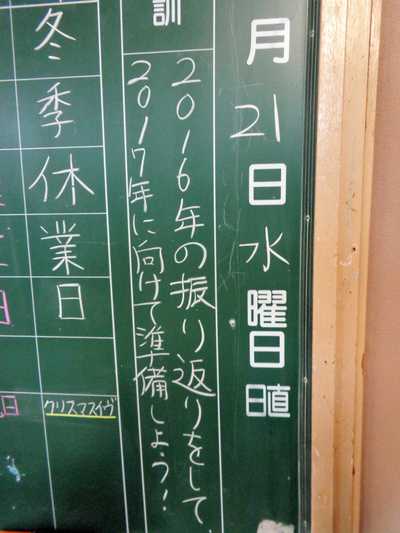 月21日水曜日
日直
訓
2016年の振り返りをして、
2017年に向けて準備しよう!
冬季休業日
クリスマスイヴ
日
日